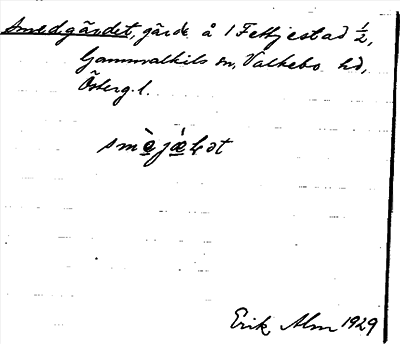 Smedgärdet, gärde å 1 Fettjestad ½,
Gammalkils sn, Valkebo hd,
Österg. l.
Erik Alm 1929